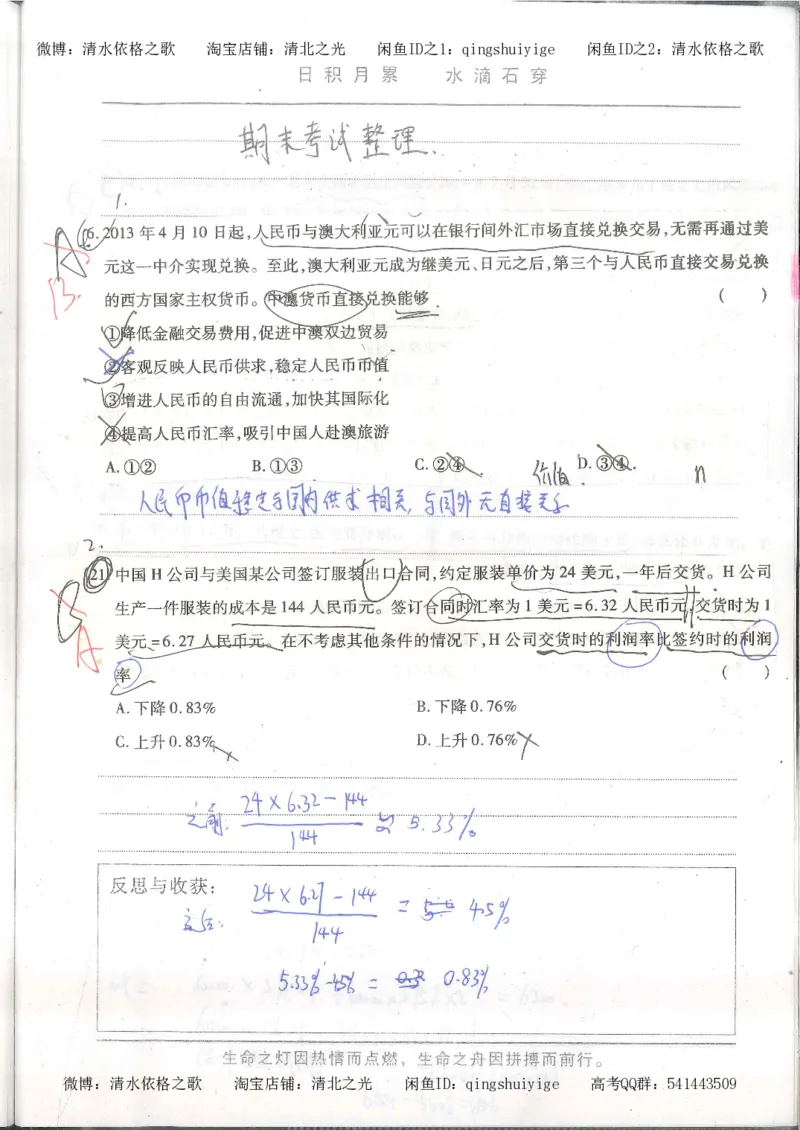 微博：清水依格之歌　　淘宝店铺：清北之光　　闲鱼ID之1：qingshuiyige　　闲鱼ID之2：清水依格之歌
日积月累　　水滴石穿
期末考试整理.
1.
A 16.2013年4月10日起,人民币与澳大利亚元可以在银行间外汇市场直接兑换交易,无需再通过美
B 元这一中介实现兑换。至此,澳大利亚元成为继美元、日元之后,第三个与人民币直接交易兑换
的西方国家主权货币。中澳货币直接兑换能够 (　　)
①降低金融交易费用,促进中澳双边贸易
②客观反映人民币供求,稳定人民币币值
③增进人民币的自由流通,加快其国际化
④提高人民币汇率,吸引中国人赴澳旅游
A.①②　　B.①③　　C.②④　　D.③④
价值. n
人民币币值稳定与国内供求相关,与国外无直接关系
2.
21 中国H公司与美国某公司签订服装出口合同,约定服装单价为24美元,一年后交货。H公司
生产一件服装的成本是144人民币元。签订合同时汇率为1美元=6.32人民币元,交货时为1
美元=6.27人民币元。在不考虑其他条件的情况下,H公司交货时的利润率比签约时的利润
A 率 (　　)
A.下降0.83%　　B.下降0.76%
C.上升0.83%　　D.上升0.76%
之前: (24×6.32-144)/144 ≈ 5.33%
反思与收获：
之后: (24×6.27-144)/144 = 4.5%
5.33%-4.5% = 0.83%
生命之灯因热情而点燃，生命之舟因拼搏而前行。
微博：清水依格之歌　　淘宝店铺：清北之光　　闲鱼ID：qingshuiyige　　高考QQ群：541443509